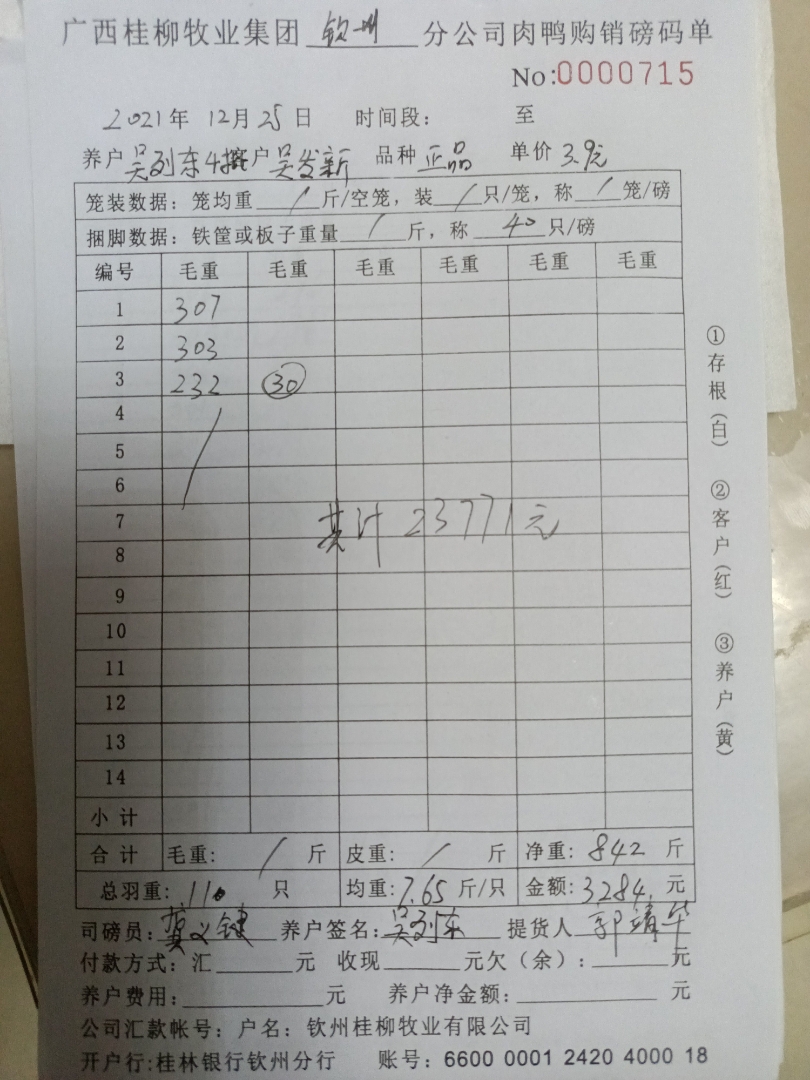 广西桂柳牧业集团 钦州 分公司肉鸭购销磅码单
No:0000715
2021年 12月25日 时间段: 至
养户 吴列东4 客户 吴发新 品种 正品 单价 3.9元
笼装数据: 笼均重 / 斤/空笼, 装 / 只/笼, 称 / 笼/磅
捆脚数据: 铁筐或板子重量 / 斤, 称 40 只/磅
编号 毛重 毛重 毛重 毛重 毛重 毛重
1 307
2 303
3 232 30
4
5
6
7 共计 23771元
8
9
10
11
12
13
14
小计
合计 毛重: / 斤 皮重: / 斤 净重: 842 斤
总羽重: 110 只 均重: 7.65 斤/只 金额: 3284. 元
司磅员: 龚义键 养户签名: 吴列东 提货人 郭靖华
付款方式: 汇 元 收现 元欠(余): 元
养户费用: 元 养户净金额: 元
公司汇款帐号: 户名: 钦州桂柳牧业有限公司
开户行:桂林银行钦州分行 账号: 6600 0001 2420 4000 18
①存根(白) ②客户(红) ③养户(黄)